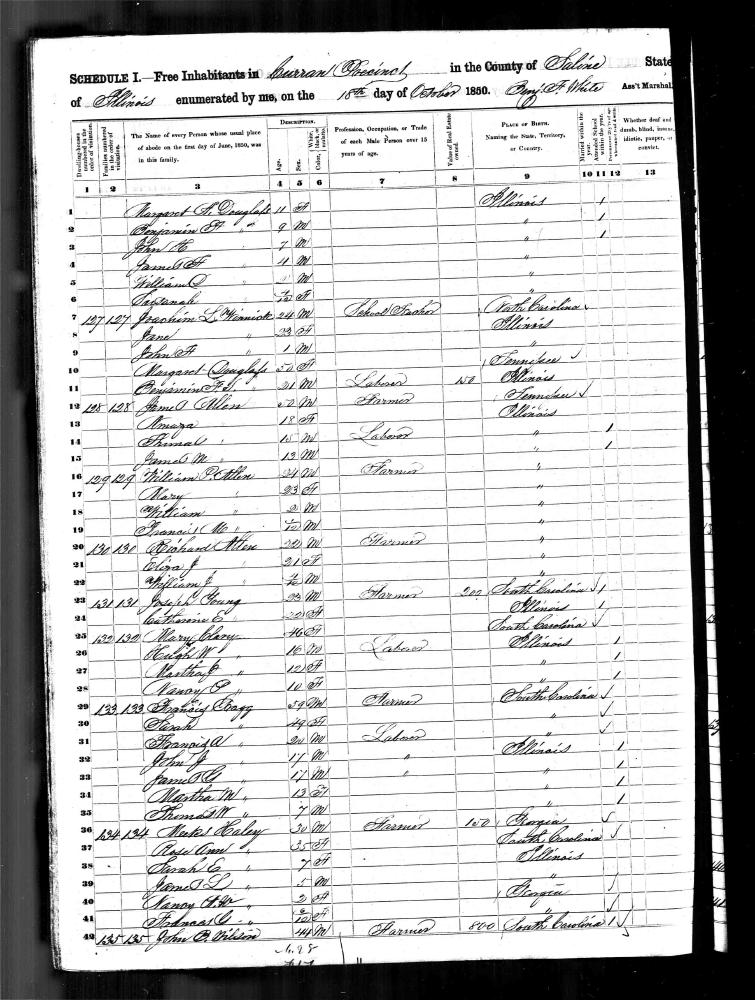 SCHEDULE I.—Free Inhabitants in Curran Precinct in the County of Saline State
of Illinois enumerated by me, on the 18th day of October 1850. Benj. F. White Ass't Marshal.
Dwelling-houses numbered in the order of visitation.
Families numbered in the order of visitation.
The Name of every Person whose usual place of abode on the first day of June, 1850, was in this family.
DESCRIPTION.
Age.
Sex.
White, black, or mulatto.
Color,
Profession, Occupation, or Trade of each Male Person over 15 years of age.
Value of Real Estate owned.
PLACE OF BIRTH.
Naming the State, Territory, or Country.
Married within the year.
Attended School within the year.
Whether deaf and dumb, blind, insane, idiotic, pauper, or convict.
1 2 3 4 5 6 7 8 9 10 11 12 13
1 Margaret Douglass 11 F Illinois 1
2 Benjamin F " 9 M " 1
3 John H 7 M " 1
4 James F " M "
5 William D " M "
6 Susanah " F "
7 127 127 Joachim L. 24 M School Teacher North Carolina
8 Jane " 23 F Illinois
9 John F " 1 M "
10 Margaret Douglass 50 F Tennessee
11 Benjamin F " 21 M Laborer 150 Illinois
12 128 128 James Allen 50 M Farmer Tennessee
13 " 18 F Illinois
14 Thomas " 15 M Laborer " 1
15 James M " 13 M " 1
16 129 129 William P. Allen 24 M Farmer "
17 Mary " 23 F "
18 William " 2 M "
19 Francis M " M "
20 130 130 Richard Allen 22 M Farmer "
21 Eliza J " 21 F "
22 William J " M "
23 131 131 Joseph Young 23 M Farmer 200 South Carolina 1
24 Catharine E " 22 F Illinois 1
25 132 132 Mary Clary 46 F South Carolina
26 Hugh W " 16 M Laborer Illinois 1
27 Martha J " 12 F " 1
28 Nancy P " 10 F " 1
29 133 133 Francis 59 M Farmer South Carolina
30 Sarah " 49 F "
31 Francis A " 20 M Laborer "
32 John J " 17 M " Illinois 1
33 James G " 17 M " " 1
34 Martha M " 13 F " 1
35 Thomas W " 7 M " 1
36 134 134 Haley 30 M Farmer 150 Georgia
37 Rose Ann " 35 F South Carolina
38 Sarah E " 7 F Illinois
39 James L " 5 M "
40 Nancy " 2 F Georgia
41 Frances G " F "
42 135 135 John B. Wilson 44 M Farmer 800 South Carolina 1